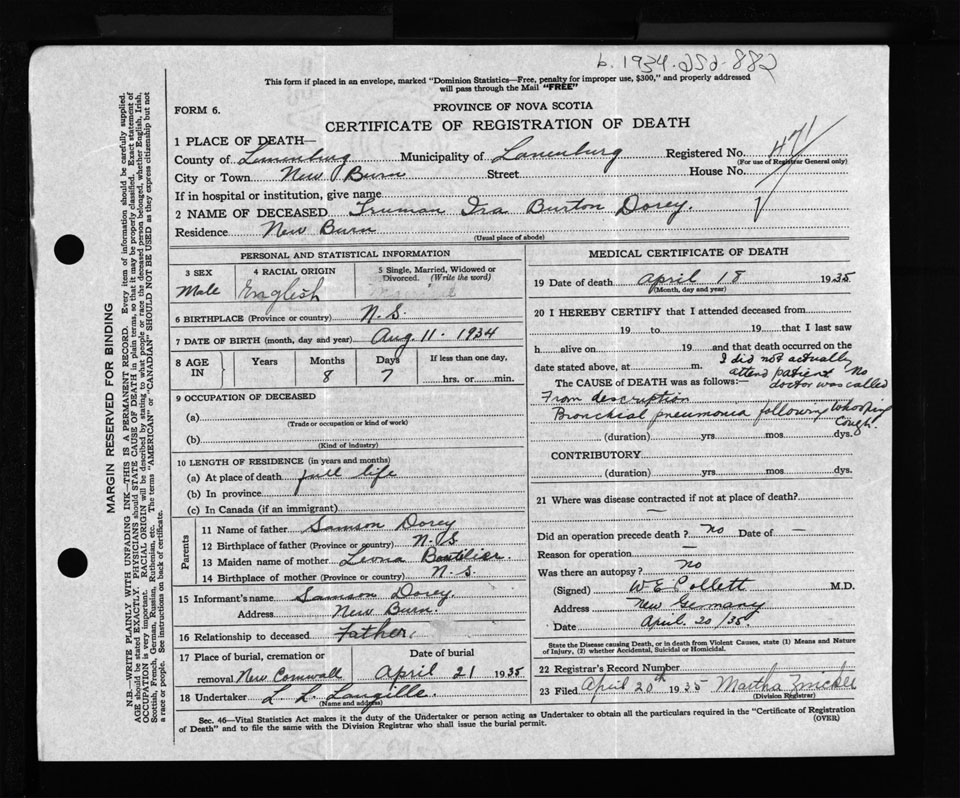 b. 1934-252-882
This form if placed in an envelope, marked "Dominion Statistics—Free, penalty for improper use, $300," and properly addressed
will pass through the Mail "FREE"
PROVINCE OF NOVA SCOTIA
FORM 6.
CERTIFICATE OF REGISTRATION OF DEATH
1 PLACE OF DEATH—
County of Lunenburg Municipality of Lunenburg Registered No. 471
(For use of Registrar General only)
City or Town New Burn Street House No.
If in hospital or institution, give name
2 NAME OF DECEASED Truman Ira Burton Dorey.
Residence New Burn
(Usual place of abode)
PERSONAL AND STATISTICAL INFORMATION
3 SEX 4 RACIAL ORIGIN 5 Single, Married, Widowed or
Divorced. (Write the word)
Male English
6 BIRTHPLACE (Province or country) N.S.
7 DATE OF BIRTH (month, day and year) Aug. 11 - 1934
8 AGE IN Years Months Days If less than one day,
8 7 hrs. or min.
9 OCCUPATION OF DECEASED
(a)
(Trade or occupation or kind of work)
(b)
(Kind of industry)
10 LENGTH OF RESIDENCE (in years and months)
(a) At place of death full life
(b) In province
(c) In Canada (if an immigrant)
Parents
11 Name of father Samson Dorey
12 Birthplace of father (Province or country) N.S
13 Maiden name of mother Leona Boutilier.
14 Birthplace of mother (Province or country) N.S.
15 Informant's name Samson Dorey.
Address New Burn.
16 Relationship to deceased Father.
17 Place of burial, cremation or Date of burial
removal New Cornwall April 21 1935
18 Undertaker L L Langille.
(Name and address)
MEDICAL CERTIFICATE OF DEATH
19 Date of death April 18 1935
(Month, day and year)
20 I HEREBY CERTIFY that I attended deceased from
19 to 19 that I last saw
h alive on 19 and that death occurred on the
date stated above, at m. I did not actually
attend patient No
The CAUSE OF DEATH was as follows:— doctor was called
From description
Bronchial pneumonia following Whooping
Cough.
(duration) yrs. mos. dys.
CONTRIBUTORY
(duration) yrs. mos. dys.
21 Where was disease contracted if not at place of death?
—
Did an operation precede death? No Date of —
Reason for operation —
Was there an autopsy? No
(Signed) W E Pollett M.D.
Address New Germany
Date April. 20/35.
State the Disease causing Death, or in death from Violent Causes, state (1) Means and Nature
of Injury, (2) whether Accidental, Suicidal or Homicidal.
22 Registrar's Record Number
23 Filed April 20th 1935 Martha Zwicker
(Division Registrar)
Sec. 46—Vital Statistics Act makes it the duty of the Undertaker or person acting as Undertaker to obtain all the particulars required in the "Certificate of Registration
of Death" and to file the same with the Division Registrar who shall issue the burial permit. (OVER)
MARGIN RESERVED FOR BINDING
N.B.—WRITE PLAINLY WITH UNFADING INK—THIS IS A PERMANENT RECORD. Every item of information should be carefully supplied.
AGE should be stated EXACTLY. PHYSICIANS should STATE CAUSE OF DEATH in plain terms, so that it may be properly classified. Exact statement of
OCCUPATION is very important. RACIAL ORIGIN will be described by stating to what people or race the deceased person belonged, whether English, Irish,
Scottish, French, German, Russian, Ruthenian, etc. The terms "AMERICAN" or "CANADIAN" SHOULD NOT BE USED as they express citizenship but not
a race or people. See instructions on back of certificate.